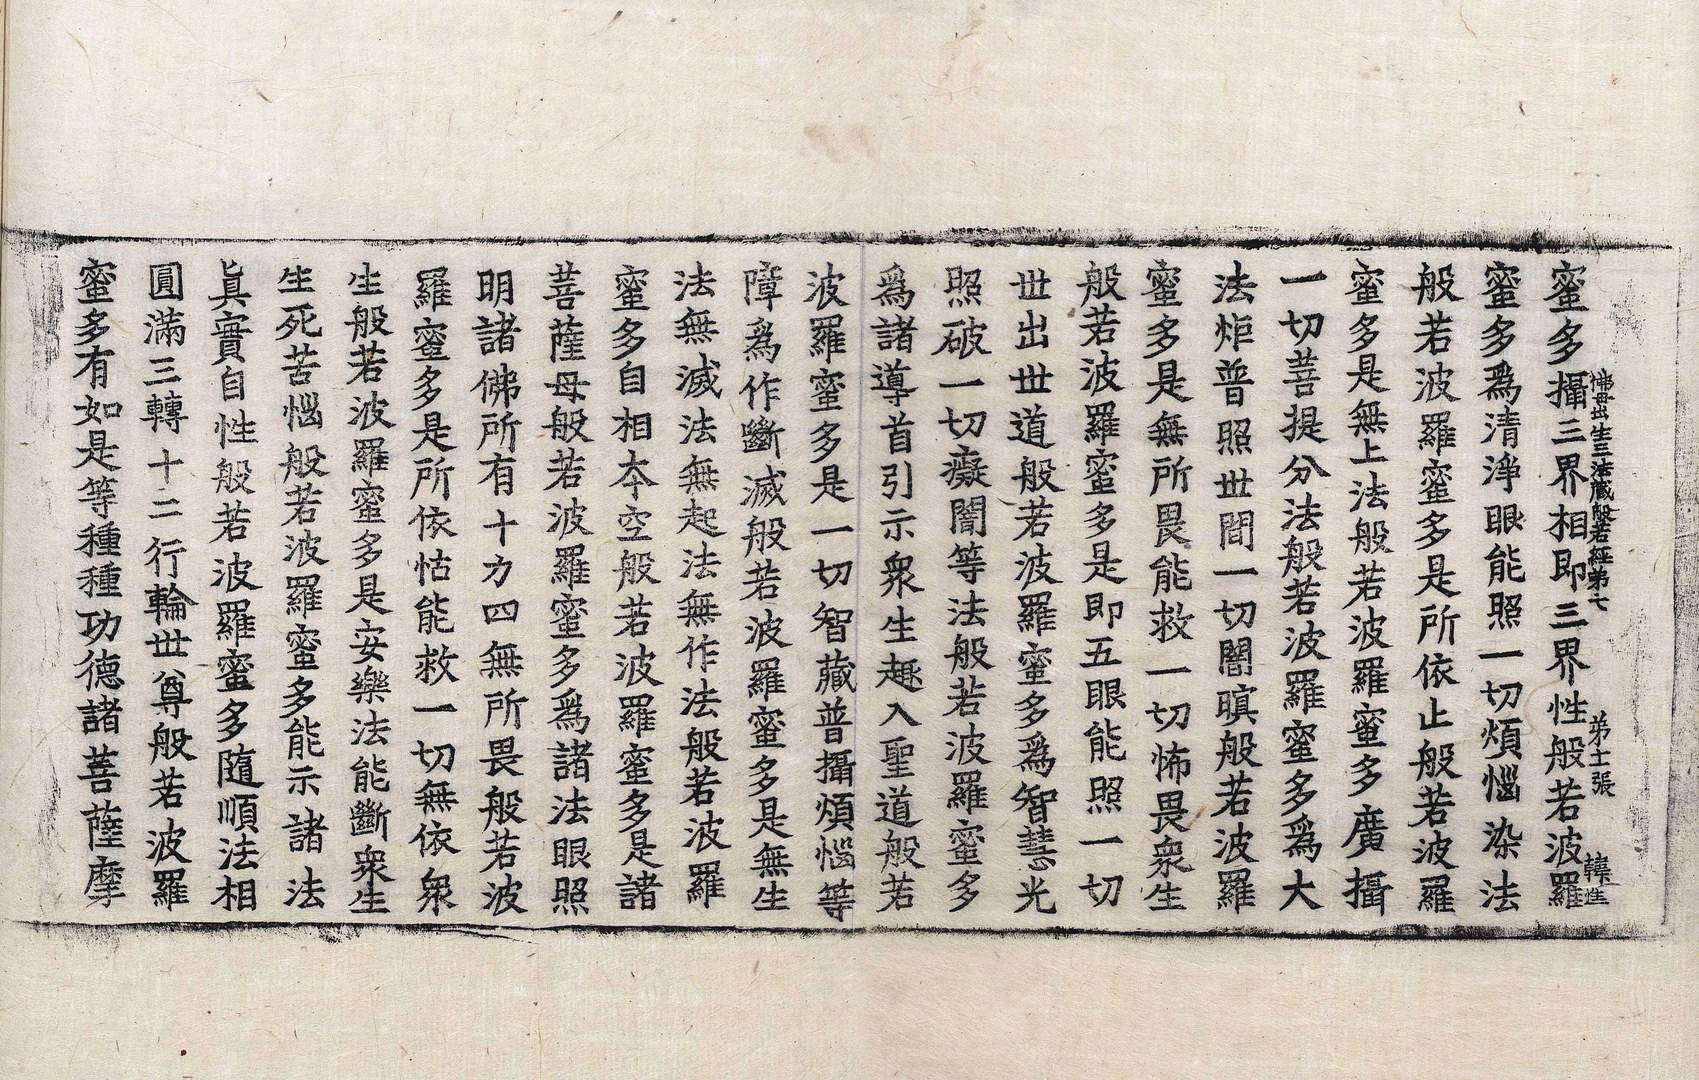 佛母出生三法藏般若經第七　第十二張　韓進
蜜多攝三界相即三界性般若波羅
蜜多爲清淨眼能照一切煩惱染法
般若波羅蜜多是所依止般若波羅
蜜多是無上法般若波羅蜜多廣攝
一切菩提分法般若波羅蜜多爲大
法炬普照世間一切闇暝般若波羅
蜜多是無所畏能救一切怖畏衆生
般若波羅蜜多是即五眼能照一切
世出世道般若波羅蜜多爲智慧光
照破一切癡闇等法般若波羅蜜多
爲諸導首引示衆生趣入聖道般若
波羅蜜多是一切智藏普攝煩惱等
障爲作斷滅般若波羅蜜多是無生
法無滅法無起法無作法般若波羅
蜜多自相本空般若波羅蜜多是諸
菩薩母般若波羅蜜多爲諸法眼照
明諸佛所有十力四無所畏般若波
羅蜜多是所依怙能救一切無依衆
生般若波羅蜜多是安樂法能斷衆生
生死苦惱般若波羅蜜多能示諸法
眞實自性般若波羅蜜多隨順法相
圓滿三轉十二行輪世尊般若波羅
蜜多有如是等種種功德諸菩薩摩